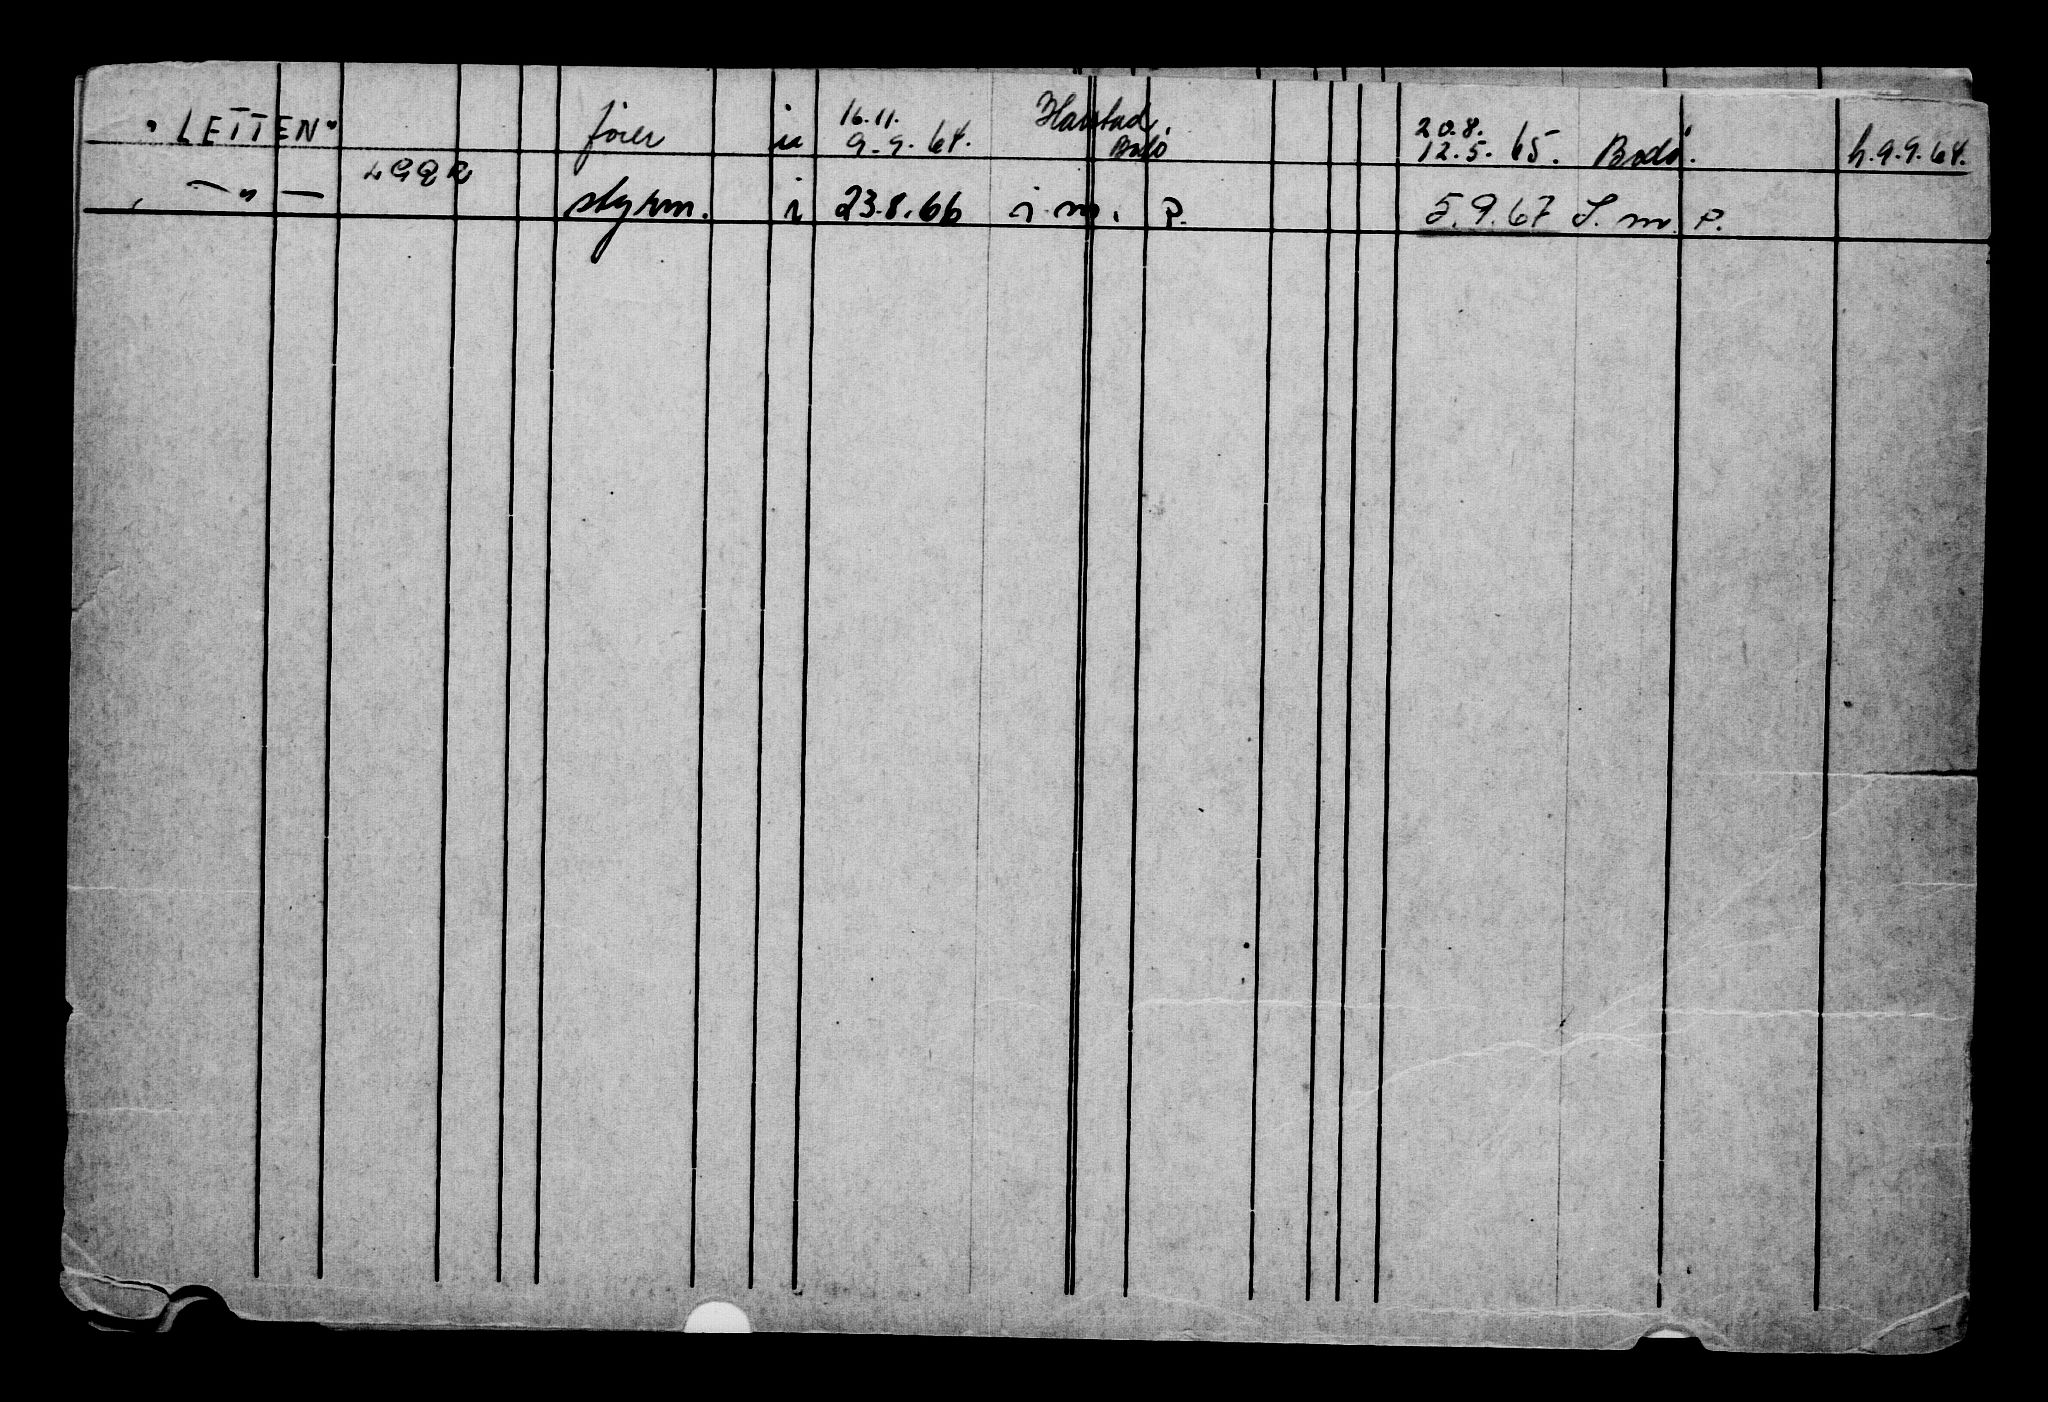 16.11. Harstad, 20.8.
"LETTEN" fører u 9.9.64. Bodö 12.5.65. Bodö. h.9.9.64.
LGQR
— " — styrm. i 23.8.66 i m. P. 5.9.67 S. m. P.